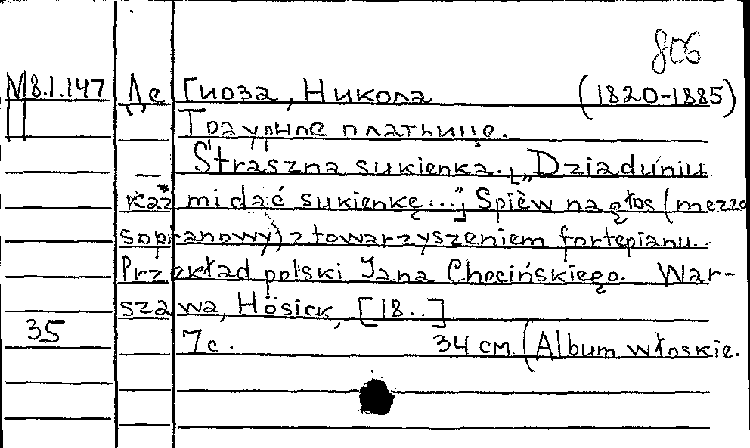 806
М8.1.147 Де Гиоза, Никола (1820-1885)
П Траурное платьице.
Straszna sukienka. [„Dziaduniu
każ mi dać sukienkę..."] Spiéw na głos (mezzo
sopranowy) z towarzyszeniem fortepianu.
Przekład polski Jana Chęcińskiego. War-
szawa, Hösick, [18..]
35 7с. 34 см. (Album włoskie.